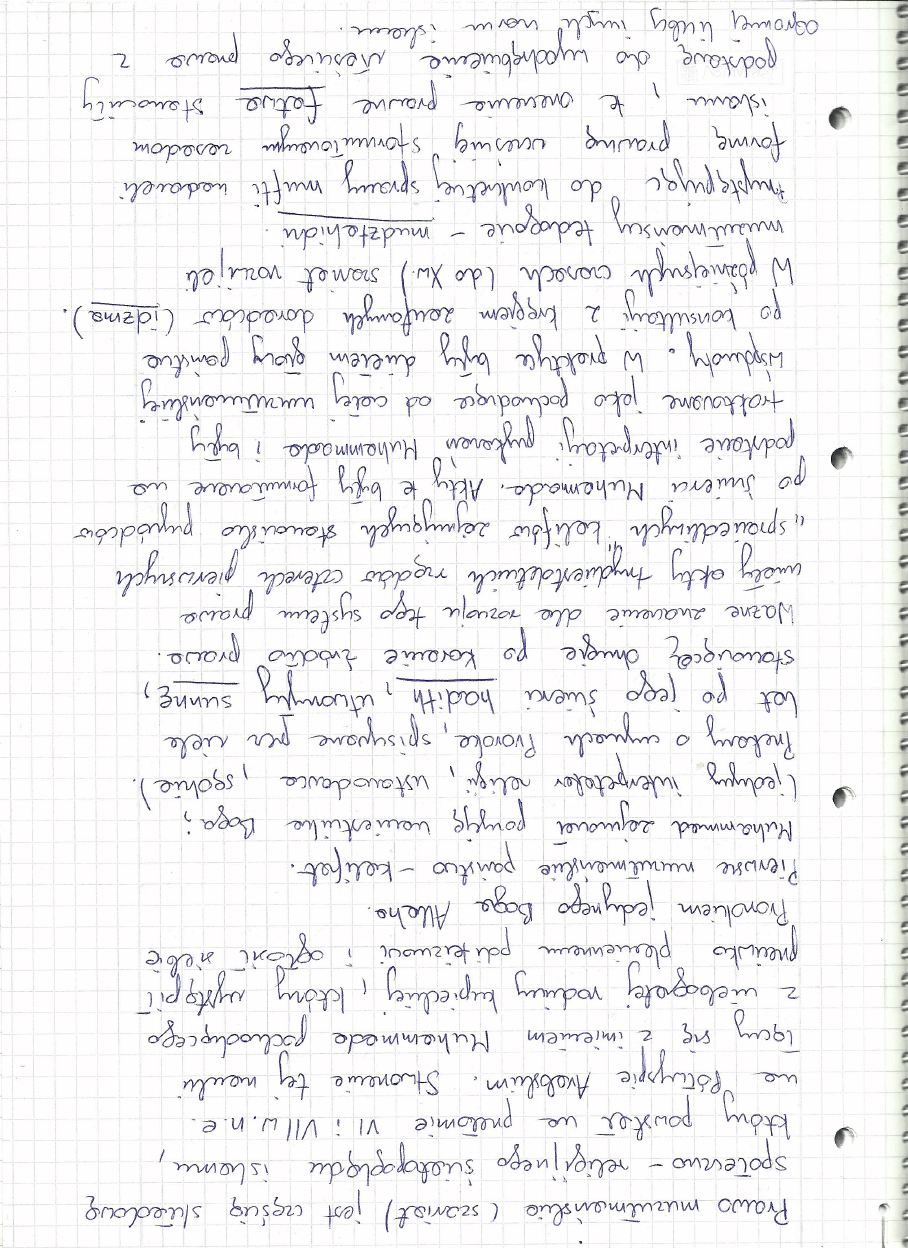 Prawo muzułmańskie (szariat) jest częścią składową
społeczno - religijnego światopoglądu islamu,
który powstał na przełomie VI i VII w. n. e.
na Półwyspie Arabskim. Stworzenie tej nauki
łączy się z imieniem Muhammada pochodzącego
z niebogatej rodziny kupieckiej, który wystąpił
przeciwko plemiennemu politeizmowi i ogłosił siebie
Prorokiem jedynego Boga Allaha.
Pierwsze muzułmańskie państwo - kalifat.
Muhammad zajmował pozycję namiestnika Boga;
(jedyny interpretator religii, ustawodawca, sędzia).
Przekazy o czynach Proroka, spisywane przez wiele
lat po jego śmierci hadith, utworzyły sunnę,
stanowiącą drugie po Koranie źródło prawa.
Ważne znaczenie dla rozwoju tego systemu prawa
miały akty trzydziestoletnich rządów czterech pierwszych
"sprawiedliwych" kalifów zajmujących stanowisko przywódców
po śmierci Muhammada. Akty te były formułowane na
podstawie interpretacji przykazań Muhammada i były
traktowane jako pochodzące od całej muzułmańskiej
wspólnoty. W praktyce były dziełem głowy państwa
po konsultacji z kręgiem zaufanych doradców (idżma).
W późniejszych czasach (do XIw.) szariat rozwijali
muzułmańscy teologowie - mudżtahidzi.
Przystępując do konkretnej sprawy mufti nadawali
formę prawną wcześniej sformułowanym zasadom
islamu, te orzeczenia prawne fatwa stanowiły
podstawę do wyodrębnienia właściwego prawa z
ogromnej liczby innych norm islamu.